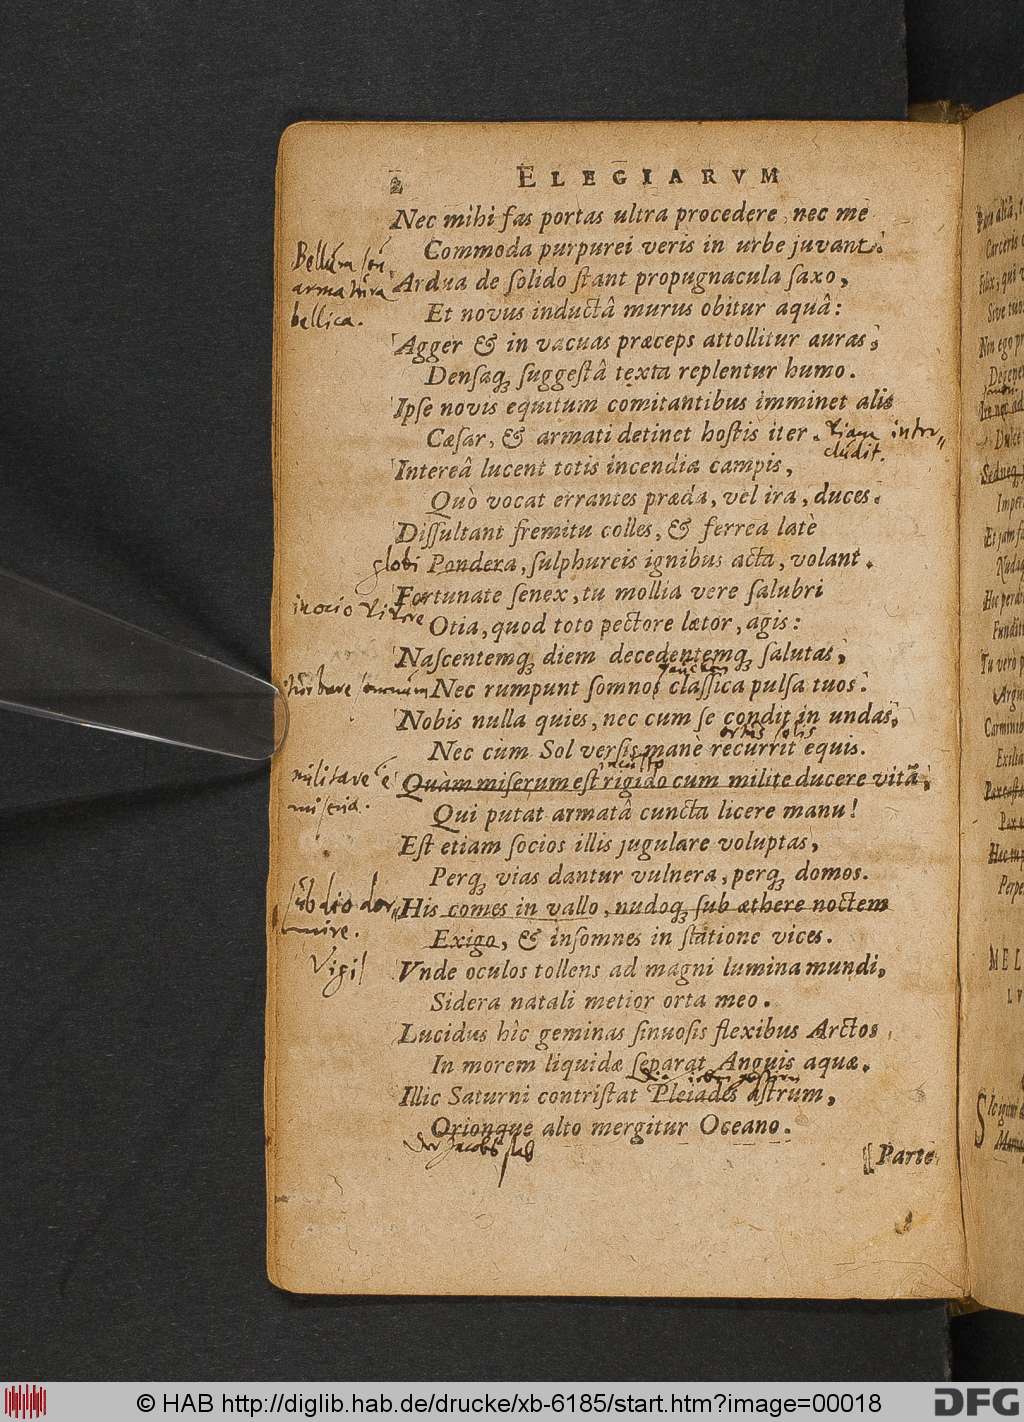 2 ELEGIARVM
Nec mihi fas portas ultra procedere, nec me
Commoda purpurei veris in urbe juvant:
Bellica
Ardua de ſolido ſtant propugnacula ſaxo,
armatura
Et novus inductâ murus obitur aquâ:
bellica.
Agger & in vacuas præceps attollitur auras,
Denſaq́; ſuggeſtâ texta replentur humo.
Ipſe novis equitum comitantibus imminet alis
Cæſar, & armati detinet hoſtis iter.
Intereâ lucent totis incendia campis,
Quò vocat errantes præda, vel ira, duces.
Diſſultant fremitu colles, & ferrea latè
globi
Pondera, ſulphureis ignibus acta, volant.
Fortunate ſenex, tu mollia vere ſalubri
in ocio vivere
Otia, quod toto pectore lætor, agis:
Naſcentemq́; diem decedentemq́; ſalutas,
turbare somnum
Nec rumpunt ſomnos claſſica pulſa tuos.
Nobis nulla quies, nec cum ſe condit in undas,
ortus solis
Nec cùm Sol verſis manè recurrit equis.
militare
Quàm miſerum eſt rigido cum milite ducere vitã,
Qui putat armatâ cuncta licere manu!
Eſt etiam ſocios illis jugulare voluptas,
Perq́; vias dantur vulnera, perq́; domos.
sub dio dor-
His comes in vallo, nudoq́; ſub æthere noctem
mire.
Exigo, & inſomnes in ſtatione vices.
Vigil
Vnde oculos tollens ad magni lumina mundi,
Sidera natali metior orta meo.
Lucidus hîc geminas ſinuoſis flexibus Arctos
In morem liquidæ ſeparat Anguis aquæ.
Illic Saturni contriſtat Pleiades aſtrum,
Orionque alto mergitur Oceano.
Der Jacobs stab
Parte
© HAB http://diglib.hab.de/drucke/xb-6185/start.htm?image=00018
DFG